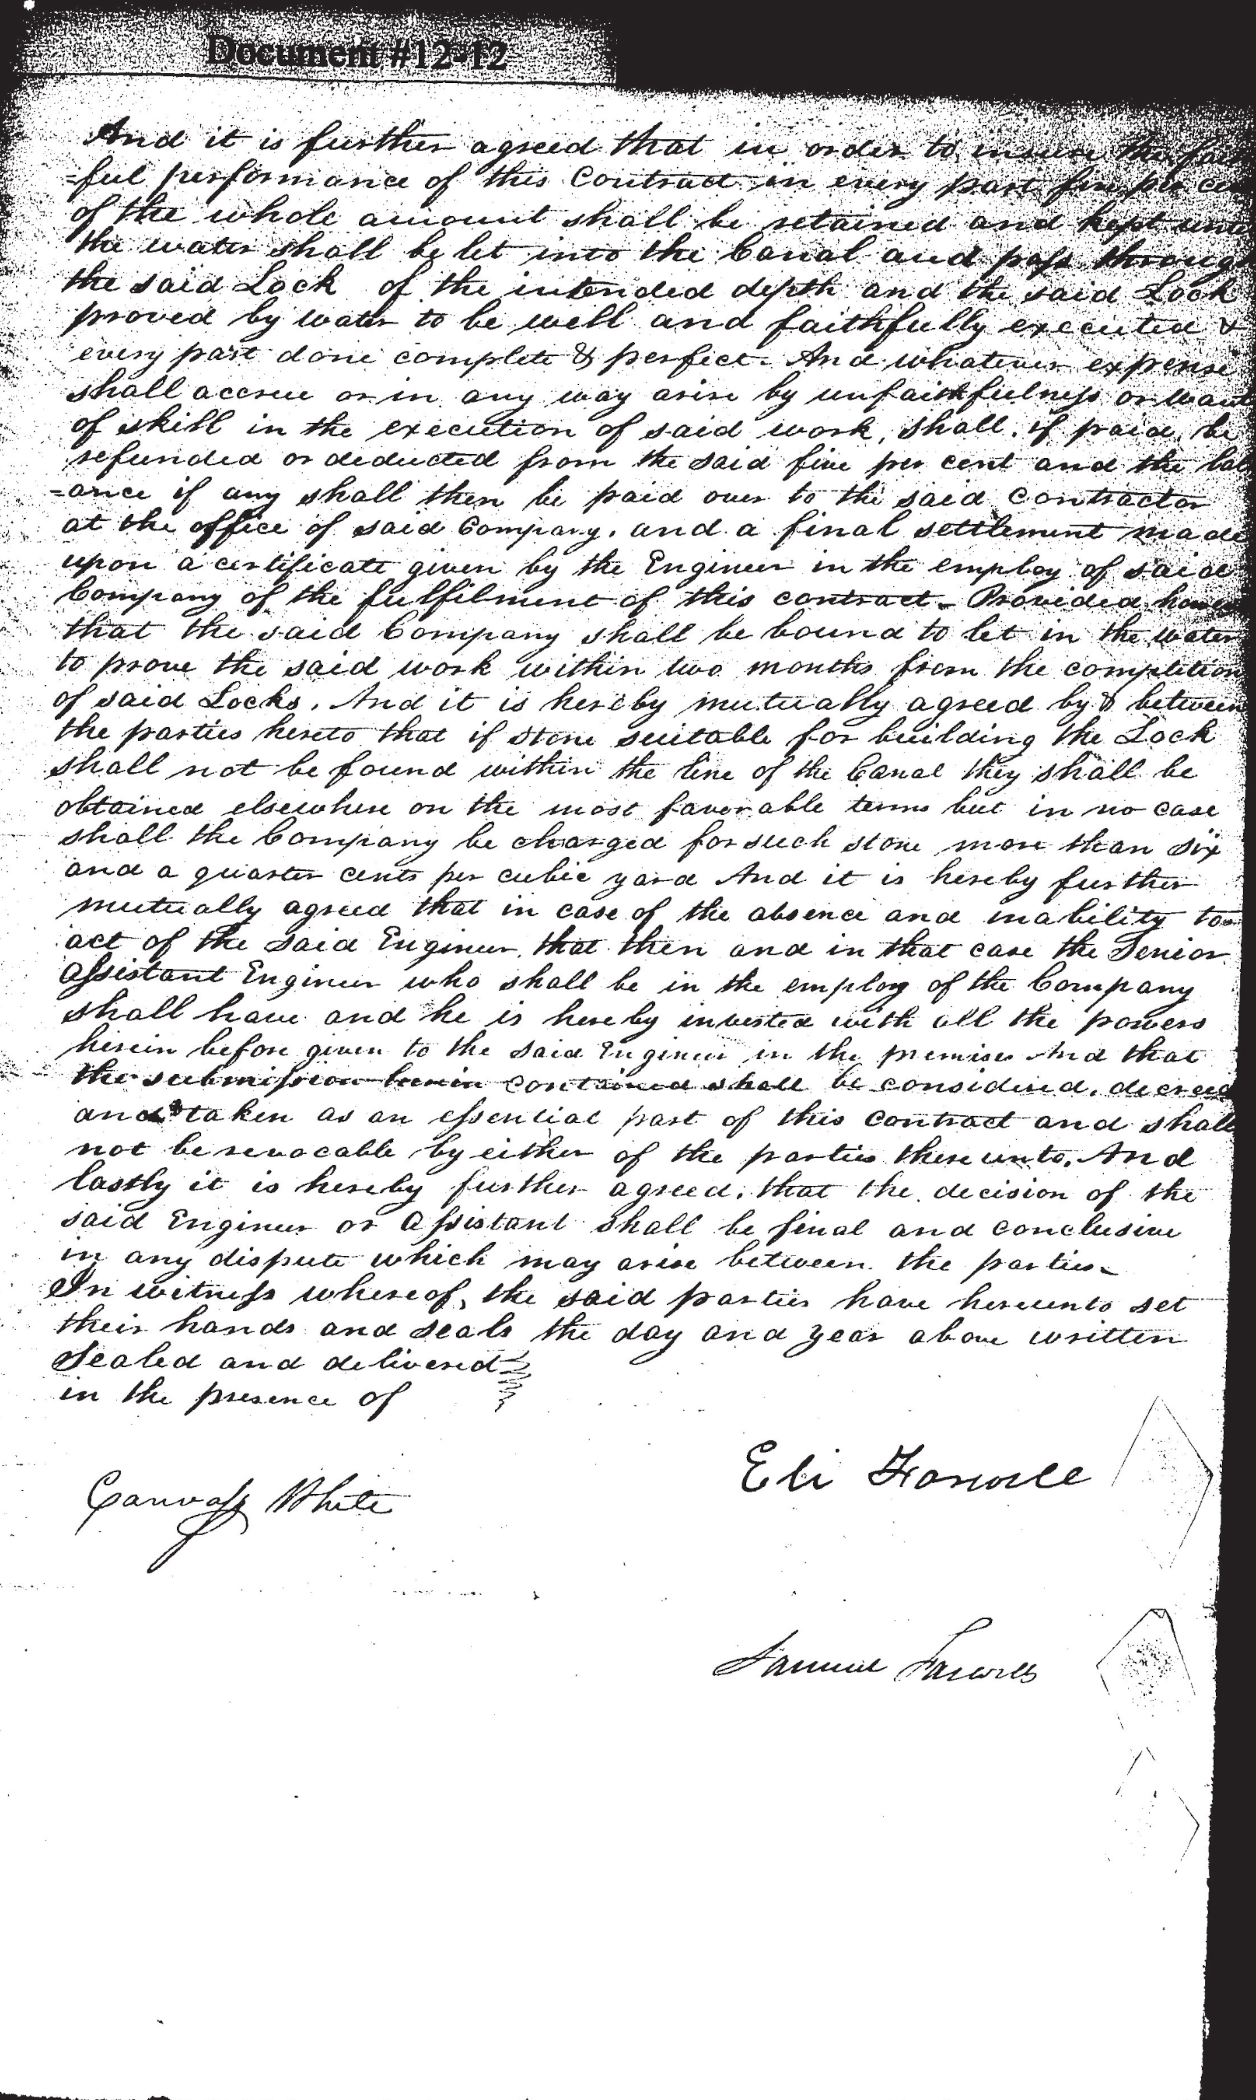 Document #12-12
And it is further agreed that in order to insure the faith
=ful performance of this Contract in every part five per cen
of the whole amount shall be retained and kept unti
the water shall be let into the Canal and pass through
the said Lock of the intended depth and the said Lock
proved by water to be well and faithfully executed &
every part done complete & perfect. And whatever expense
shall accrue or in any way arise by unfaithfulness or want
of skill in the execution of said work, shall, if paid, be
refunded or deducted from the said five per cent and the bal
=ance if any shall then be paid over to the said Contractor
at the office of said Company, and a final settlement made
upon a certificate given by the Engineer in the employ of said
Company of the fulfilment of this contract. Provided however
that the said Company shall be bound to let in the water
to prove the said work within two months from the completion
of said Locks. And it is hereby mutually agreed by & between
the parties hereto that if stone suitable for building the Lock
shall not be found within the line of the Canal they shall be
obtained elsewhere on the most favorable terms but in no case
shall the Company be charged for such stone more than six
and a quarter cents per cubic yard And it is hereby further
mutually agreed that in case of the absence and inability to
act of the said Engineer, that then and in that case the Senior
Assistant Engineer who shall be in the employ of the Company
shall have and he is hereby invested with all the powers
herein before given to the said Engineer in the premises And that
the submission herein contained shall be considered, decreed
and taken as an essential part of this contract and shall
not be revocable by either of the parties thereunto. And
lastly it is hereby further agreed, that the decision of the
said Engineer or Assistant shall be final and conclusive
in any dispute which may arise between the parties.
In witness whereof, the said parties have hereunto set
their hands and seals the day and year above written
Sealed and delivered
in the presence of
Eli Farwell
Canvass White
Samuel Farwell